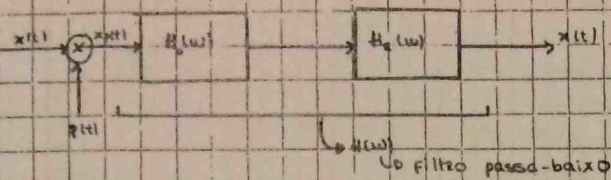 x(t) x xp(t) H₀(w) Hr(w) x(t)
p(t)
H(w)
↳ filtro passa-baixo